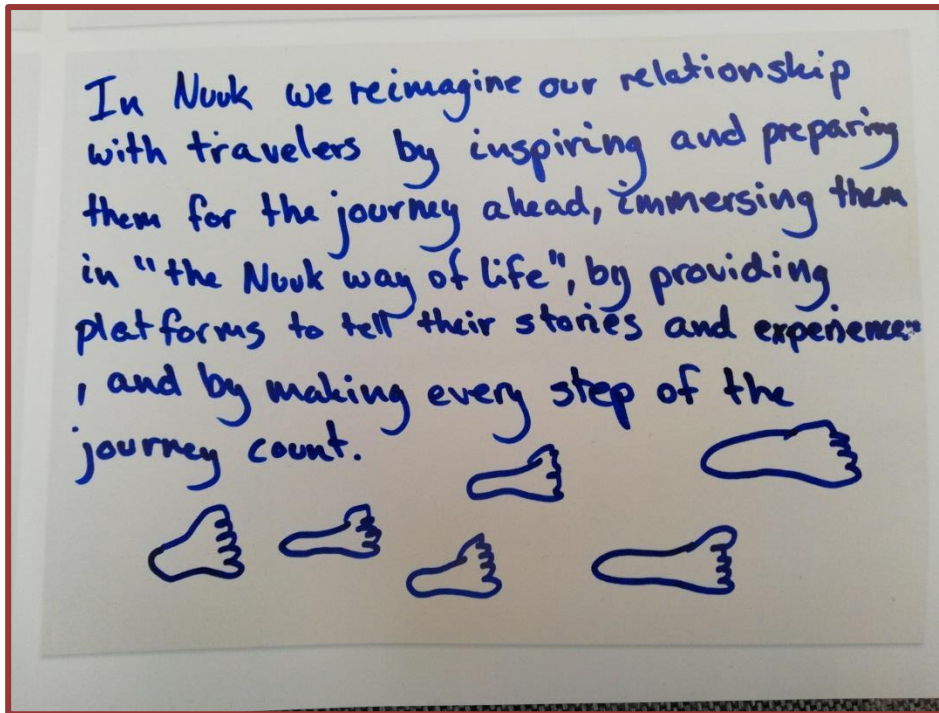 In Nuuk we reimagine our relationship
with travelers by inspiring and preparing
them for the journey ahead, immersing them
in "the Nuuk way of life", by providing
platforms to tell their stories and experiences
, and by making every step of the
journey count.